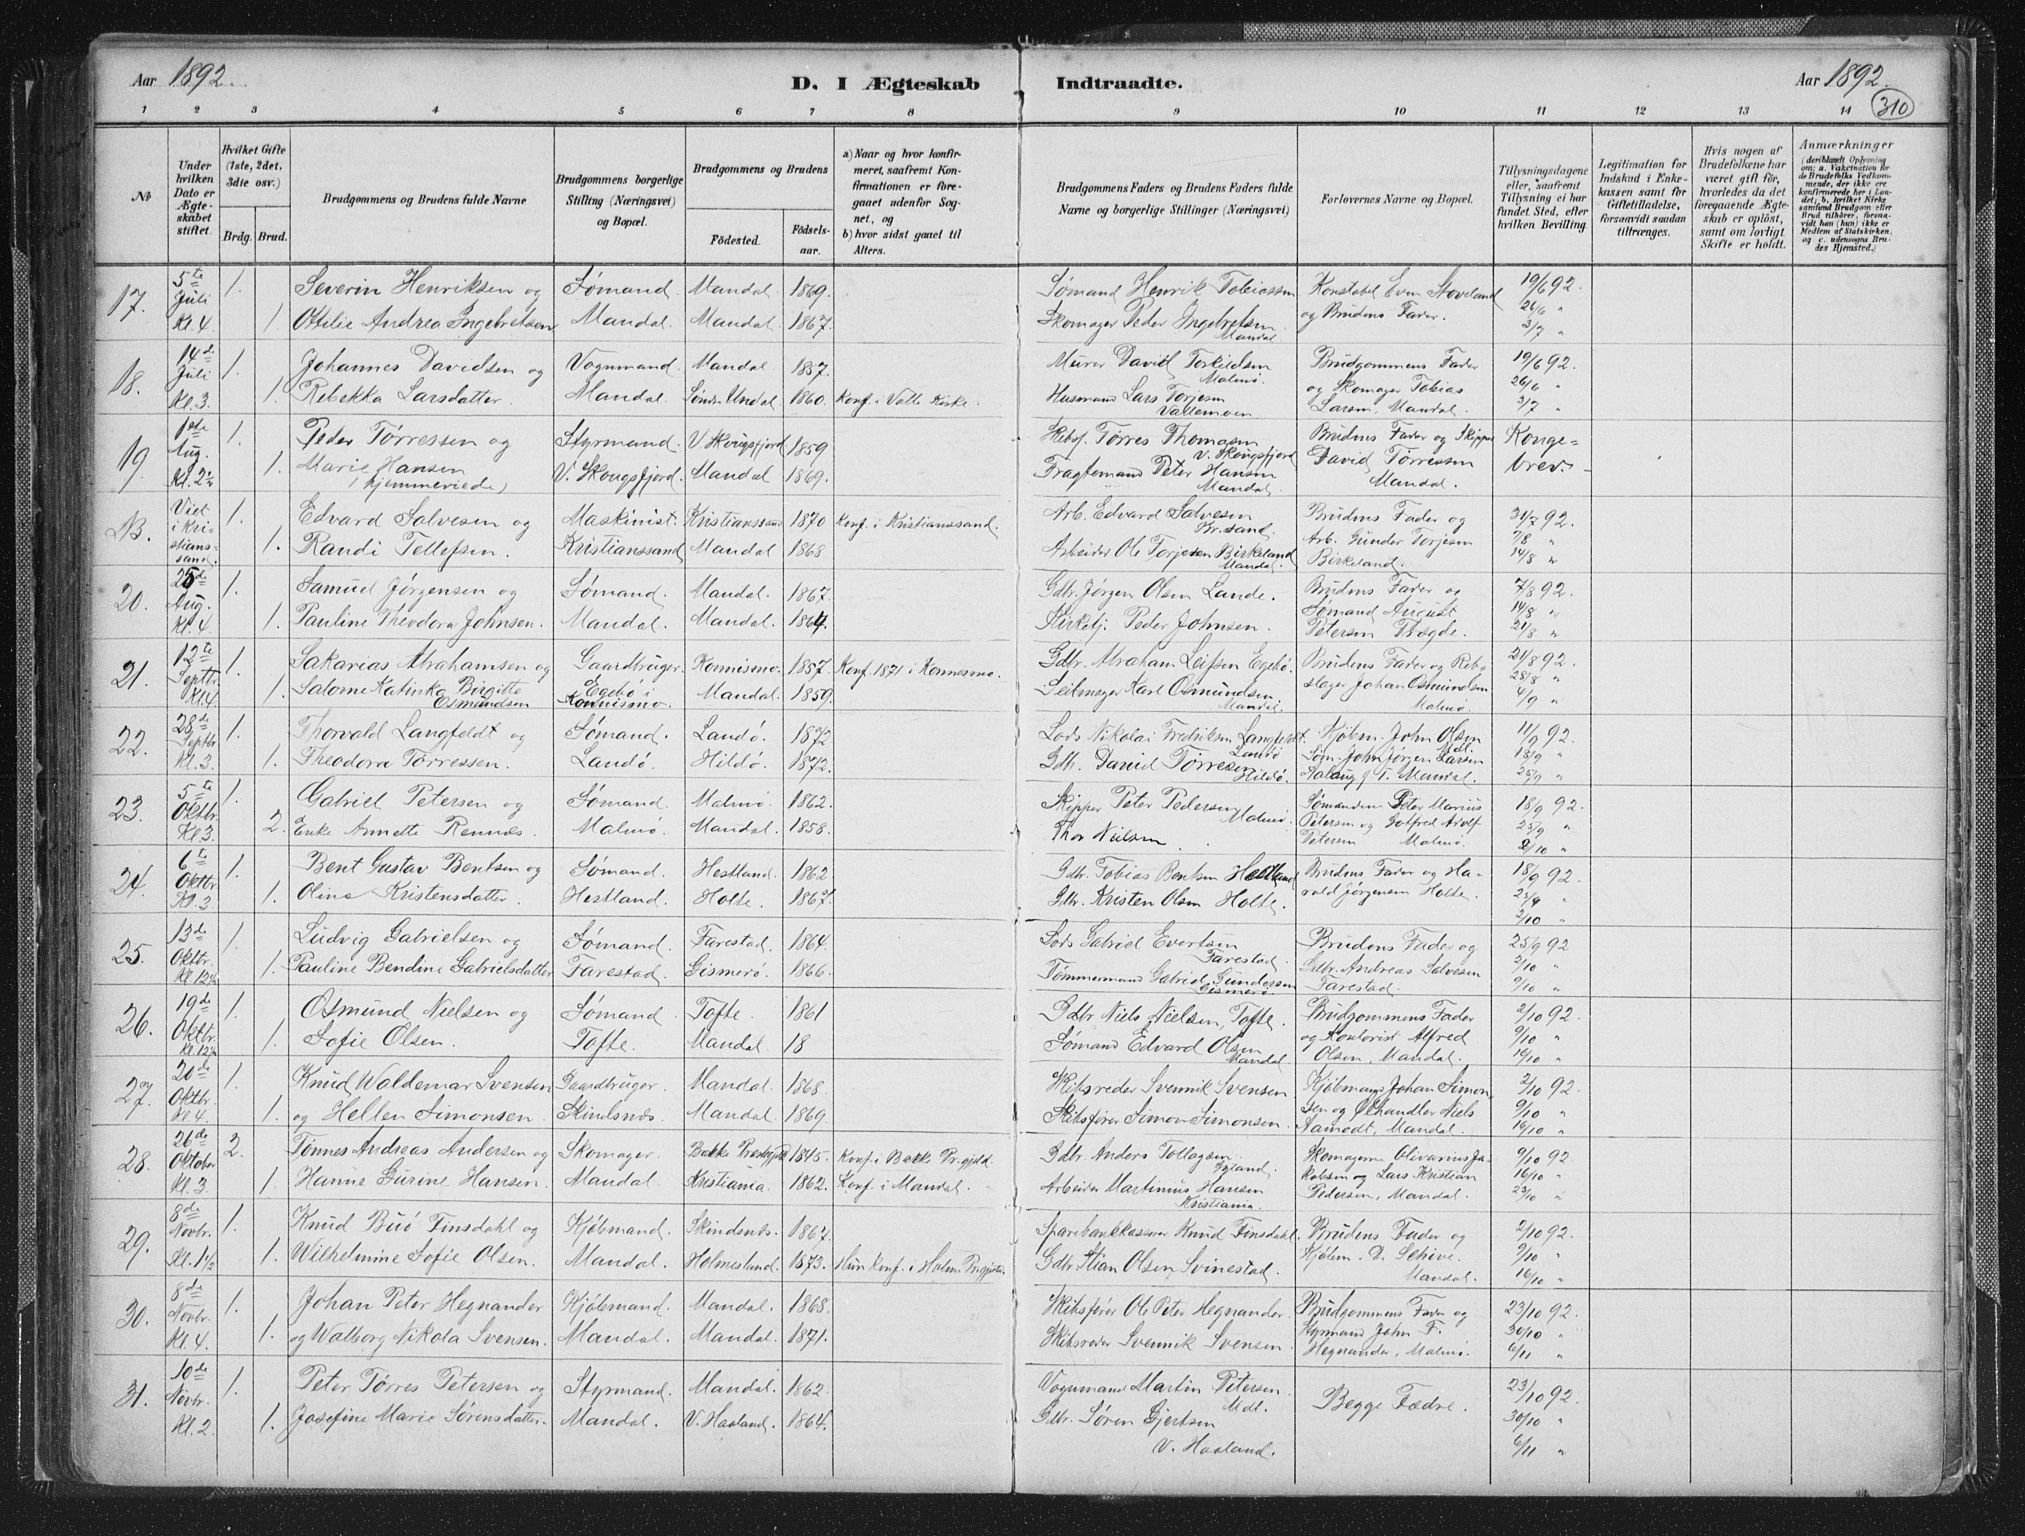 Aar 1892.
D. I Ægteskab Indtraadte.
Aar 1892.
310
1 2 3 4 5 6 7 8 9 10 11 12 13 14
No
Under hvilken Dato er Ægteskabet stiftet.
Hvilket Gifte (1ste, 2det, 3die osv.)
Brdg. Brud.
Brudgommens og Brudens fulde Navne
Brudgommens borgerlige Stilling (Næringsvei) og Bopæl.
Brudgommens og Brudens
Födested.
Födselsaar.
a) Naar og hvor konfirmeret, saafremt Konfirmationen er foregaaet udenfor Sognet, og
b) hvor sidst gaaet til Alters.
Brudgommens Faders og Brudens Faders fulde Navne og borgerlige Stillinger (Næringsvei)
Forlovernes Navne og Bopæl.
Tillysningsdagene eller, saafremt Tillysning ei har fundet Sted, efter hvilken Bevilling.
Legitimation for Indskud i Enkekassen samt for Giftetilladelse, forsaavidt saadan tiltrænges.
Hvis nogen af Brudefolkene har været gift för, hvorledes da det foregaaende Ægteskab er oplöst, samt om lovligt Skifte er holdt.
Anmærkninger
(deriblandt Oplysning om: a. Vakcination for de Brudefolks Vedkommende, der ikke ere konfirmerede her i Landet; b. hvilket Kirkesamfund Brudgom eller Brud tilhörer, forsaavidt han (hun) ikke er Medlem af Statskirken. og c. udensogns Brudes Hjemsted.)
17. 5te Juli Kl. 4. 1. Severin Henriksen og Sømand. Mandal. 1869. Sømand Henrik Tobiassen Konstabel Even Stoveland 19/6 92.
1 Ottilie Andrea Ingebretsen Mandal. Mandal. 1867. Skomager Peder Ingebretsen. Mandal og Brudens Fader. 26/6 " 3/7 "
18. 14de Juli Kl. 3. 1. Johannes Davidsen og Vognmand. Mandal 1857. Murer David Torkildsen Malmø. Brudgommens Fader 19/6 92.
1. Rebekka Larsdatter. Mandal. Søndr Undal. 1860. Konf. i Valle Kirke. Husmand Lars Torjesen Vallemoen og Skomager Tobias Larsen, Mandal. 26/6 " 3/7 "
19. 1ste Aug. Kl. 2½ 1. Peder Tørressen og Styrmand. V. Skougsfjord 1859 Skibsf. Tørres Thomasen V. Skougsfjord Brudens Fader og Skipper Konge-
1. Marie Hansen (hjemmeviede) V. Skougsfjord. Mandal 1869. Fragtemand Peter Hansen Mandal. David Tørressen Mandal. brev
N.B. Viet i Kristianssand. 1. Edvard Salvesen og Maskinist. Kristianssand 1870 Konf. i Kristianssand. Arb. Edvard Salvesen Kr.sand. Brudens Fader og 31/7 92.
1. Randi Tellefsen. Kristianssand Mandal 1868 Arbeider Ole Torjesen Birkeland Mandal. Arb. Gunder Torjesen Birkeland. 7/8 " 14/8 "
20. 25de Aug. Kl. 4 1. Samuel Jørgensen og Sømand. Mandal. 1867. Gdbr. Jørgen Olsen Lande. Brudens Fader og 7/8 92.
1. Pauline Theodora Johnsen. Mandal. Mandal. 1864. Kirketj. Peder Johnsen. Sømand August Petersen Tregde. 14/8 " 21/8 "
21. 12te Septbr. Kl. 4 1. Sakarias Abrahamsen og Gaardbruger. Konnismo. 1857. Konf 1871 i Konnesmo. Gdbr. Abraham Leifsen Egebø. Brudens Fader og Reb- 21/8 92.
1. Salome Katinka Birgitte Osmundsen Egebø i Konnismo. Mandal. 1859. Seilmager Karl Osmundsen Mandal. slager Johan Osmundsen Malmø. 28/8 " 4/9 "
22. 28de Septbr. Kl. 3. 1. Thorvald Langfeldt og Sømand. Landø. 1872 Lods Nikolai Fredriksen Langfeldt. Landø Kjøbm. John Olsen Mdl. 11/9 92.
1. Theodora Tørressen. Landø Hildø. 1872. Gdbr. David Tørresen Hildø. John Jørgen Larsen Mandal. 18/9 " 25/9 "
23. 5te Oktbr. Kl. 3. 1. Gabriel Petersen og Sømand. Malmø. 1862. Skipper Peter Pedersen Malmø. Sømændene Peter Marius 18/9 92.
2. Enke Annette Rennæs. Malmø. Mandal. 1858. Thor Nielsen. Petersen og Gotfred Adolf Petersen Malmø. 25/9 " 2/10 "
24. 6te Oktbr. Kl. 3. 1. Bent Gustav Bentsen og Sømand. Hestland. 1862 Gdbr. Tobias Bentsen Hestland Brudens Fader og Ha- 18/9 92.
1. Oline Kristensdatter. Hestland. Holte. 1867. Gdbr. Kristen Olsen Holte. rald Jørgensen Holte. 25/9 " 2/10 "
25. 13de Oktbr. Kl. 12½ 1. Ludvig Gabrielsen og Sømand. Farestad. 1864. Lods Gabriel Evertsen Farestad. Brudens Fader og 25/9 92
1. Pauline Bendine Gabrielsdatter Farestad. Gismerø. 1866. Tømmermand Gabriel Gundersen Gismerø. Gdbr. Andreas Salvesen Farestad. 2/10 " 9/10 "
26. 19de Oktbr. Kl. 12½ 1. Osmund Nielsen og Sømand. Tofte. 1861 Gdbr Niels Nielsen, Tofte. Brudgommens Fader 2/10 92.
1. Sofie Olsen. Tofte. Mandal. 18 Sømand Edvard Olsen Mandal og Kontorist Alfred Olsen, Mandal. 9/10 " 16/10 "
27. 20de Oktbr. Kl. 4. 1. Knud Waldemar Svensen Gaardbruger Mandal. 1868. Skibsreder Svennik Svensen Kjøbmænd Johan Simon- 2/10 92.
1. og Hellen Simonsen. Skinsnæs. Mandal 1869. Skibsfører Simon Simonsen. sen og Ølhandler Niels Aamodt, Mandal. 9/10 " 16/10 "
28. 26de Oktober Kl. 3 2. Tønnes Andreas Andersen og Skomager. Bakke Præstegjeld 1845. Konf. i Bakke Pr.gjeld. Gdbr Anders Tollagsen Fyland. Skomagerne Olivarius Ja- 9/10 92
1. Hanne Gurine Hansen. Mandal. Kristiania. 1862. Konf. i Mandal. Arbeider Martinius Hansen Kristiania. kobsen og Lars Kristian Pedersen, Mandal. 16/10 " 23/10 "
29. 8de Novbr. Kl. 1½ 1. Knud Buø Finsdahl og Kjøbmand. Skindsnæs. 1867. Sparebankkasserer Knud Finsdahl. Brudens Fader og 2/10 92
1. Wilhelmine Sofie Olsen. Mandal. Holmesland. 1873. Hun Konf. i Holme Pr.gjeld. Gdbr Stian Olsen Svinestad. Kjøbm. D. Schive. Mandal. 9/10 " 16/10 "
30. 8de Novbr. Kl. 4. 1. Johan Peter Hegnander Kjøbmand. Mandal. 1868. Skibsfører Ole Peter Hegnander Brudgommens Fader og 23/10 92.
1. og Walborg Nikola Svensen. Mandal. Mandal. 1871. Skibsreder Svennik Svensen. Styrmand John F. Hegnander, Malmø. 30/10 " 6/11 "
31. 10de Novbr. Kl. 2. 1. Peter Tørres Petersen og Styrmand. Mandal. 1862. Vognmand Martin Petersen Mdl. Begge Fædre. 23/10 92.
1. Josefine Marie Sørensdatter. Mandal. V. Haaland. 1864. Gdbr. Søren Gjertsen V. Haaland. 30/10 " 6/11 "